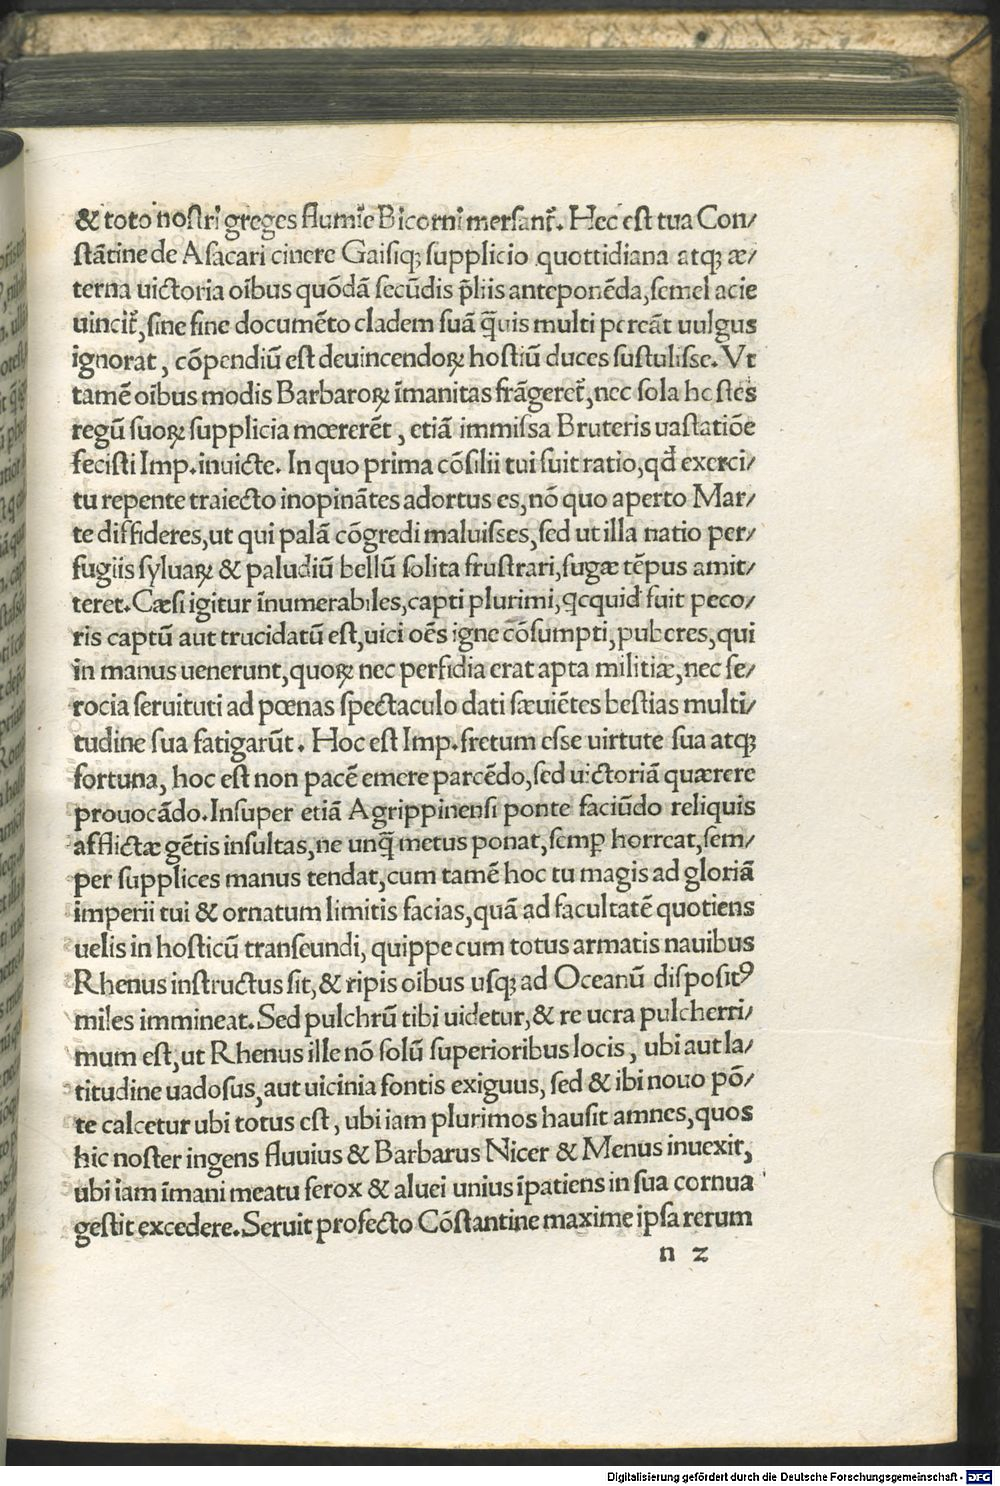 & toto nostri greges flumīe Bicorni mersant᷑. Hec est tua Con/
stātine de Asacari cinere Gaisiqꝫ supplicio quottidiana atqꝫ æ/
terna uictoria oībus quōdā secūdis p̄liis anteponēda, semel acie
uincit᷑, sine fine documēto cladem suā q̄uis multi pereāt uulgus
ignorat, cōpendiū est deuincendoꝝ hostiū duces sustulisse. Vt
tamē oībus modis Barbaroꝝ īmanitas frāgeret᷑, nec sola hostes
regū suoꝝ supplicia mœrerēt, etiā immissa Bruteris uastatiōe
fecisti Imp. inuicte. In quo prima cōsilii tui fuit ratio, qđ exerci/
tu repente traiecto inopinātes adortus es, nō quo aperto Mar/
te diffideres, ut qui palā cōgredi maluisses, sed ut illa natio per/
fugiis syluaꝝ & paludiū bellū solita frustrari, fugæ tēpus amit/
teret. Cæsi igitur īnumerabiles, capti plurimi, qcquid fuit peco/
ris captū aut trucidatū est, uici oēs igne cōsumpti, puberes, qui
in manus uenerunt, quoꝝ nec perfidia erat apta militiæ, nec fe/
rocia seruituti ad pœnas spectaculo dati sæuiētes bestias multi/
tudine sua fatigarūt. Hoc est Imp. fretum esse uirtute sua atqꝫ
fortuna, hoc est non pacē emere parcēdo, sed uictoriā quærere
prouocādo. Insuper etiā Agrippinensi ponte faciūdo reliquis
afflictæ gētis insultas, ne unq̄ metus ponat, semꝑ horreat, sem/
per supplices manus tendat, cum tamē hoc tu magis ad gloriā
imperii tui & ornatum limitis facias, quā ad facultatē quotiens
uelis in hosticū transeundi, quippe cum totus armatis nauibus
Rhenus instructus sit, & ripis oībus usqꝫ ad Oceanū dispositꝰ
miles immineat. Sed pulchrū tibi uidetur, & re uera pulcherri/
mum est, ut Rhenus ille nō solū superioribus locis, ubi aut la/
titudine uadosus, aut uicinia fontis exiguus, sed & ibi nouo pō/
te calcetur ubi totus est, ubi iam plurimos hausit amnes, quos
hic noster ingens fluuius & Barbarus Nicer & Menus inuexit,
ubi iam īmani meatu ferox & aluei unius īpatiens in sua cornua
gestit excedere. Seruit profecto Cōstantine maxime ipsa rerum
n 2
Digitalisierung gefördert durch die Deutsche Forschungsgemeinschaft - DFG